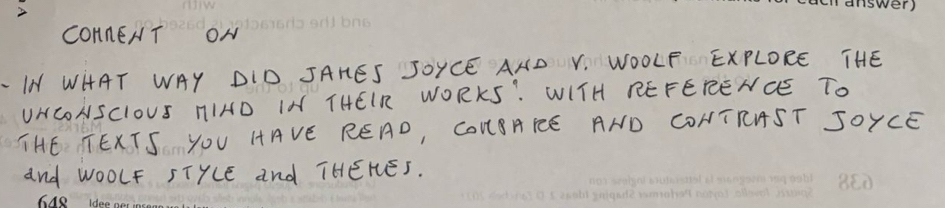 each answer)
COMMENT ON
- IN WHAT WAY DID JAMES JOYCE AND V. WOOLF EXPLORE THE
UNCONSCIOUS MIND IN THEIR WORKS? WITH REFERENCE TO
THE TEXTS YOU HAVE READ, COMPARE AND CONTRAST JOYCE
and WOOLF STYLE and THEMES.
648 Idee per